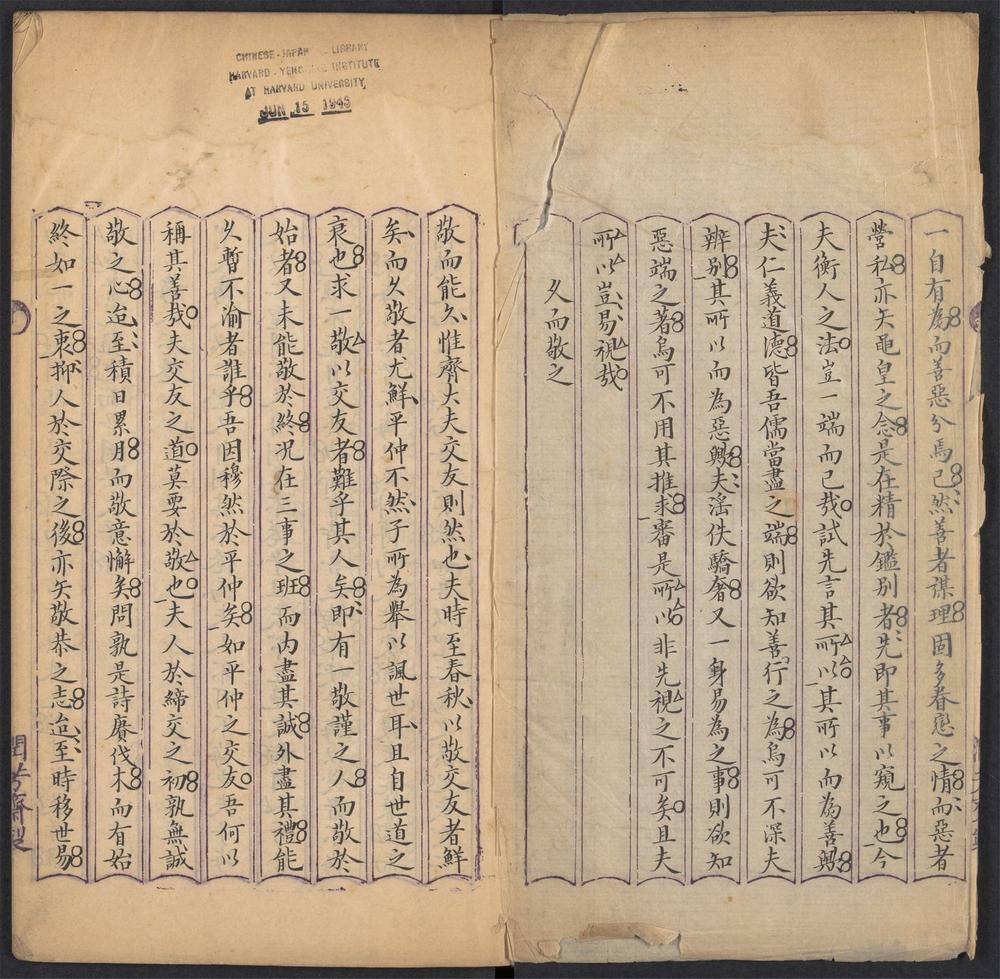 一自有為而善惡分焉已然善者謀理固多眷戀之情而惡者
營私亦矢黽皇之念是在精於鑑別者先即其事以窺之也今
夫衡人之法豈一端而已哉試先言其所以其所以而為善歟
夫仁義道德皆吾儒當盡之端則欲知善行之為烏可不深夫
辨別其所以而為惡歟夫淫佚驕奢又一身易為之事則欲知
惡端之著烏可不用其推求審是所以非先視之不可矣且夫
所以豈易視哉
久而敬之
敬而能久惟齊大夫交友則然也夫時至春秋以敬交友者鮮
矣而久敬者尤鮮平仲不然子所為舉以諷世耳且自世道之
衰也求一敬以交友者難乎其人矣即有一敬謹之人而敬於
始者又未能敬於終況在三事之班而內盡其誠外盡其禮能
久暫不渝者誰乎吾因穆然於平仲矣如平仲之交友吾何以
稱其善哉夫交友之道莫要於敬也夫人於締交之初孰無誠
敬之心迨至積日累月而敬意懈矣問孰是詩賡伐木而有始
終如一之衷抑人於交際之後亦矢敬恭之志迨至時移世易
CHINESE-JAPAN LIBRARY
HARVARD-YENC INSTITUTE
AT HARVARD UNIVERSITY
JUN 15 1949